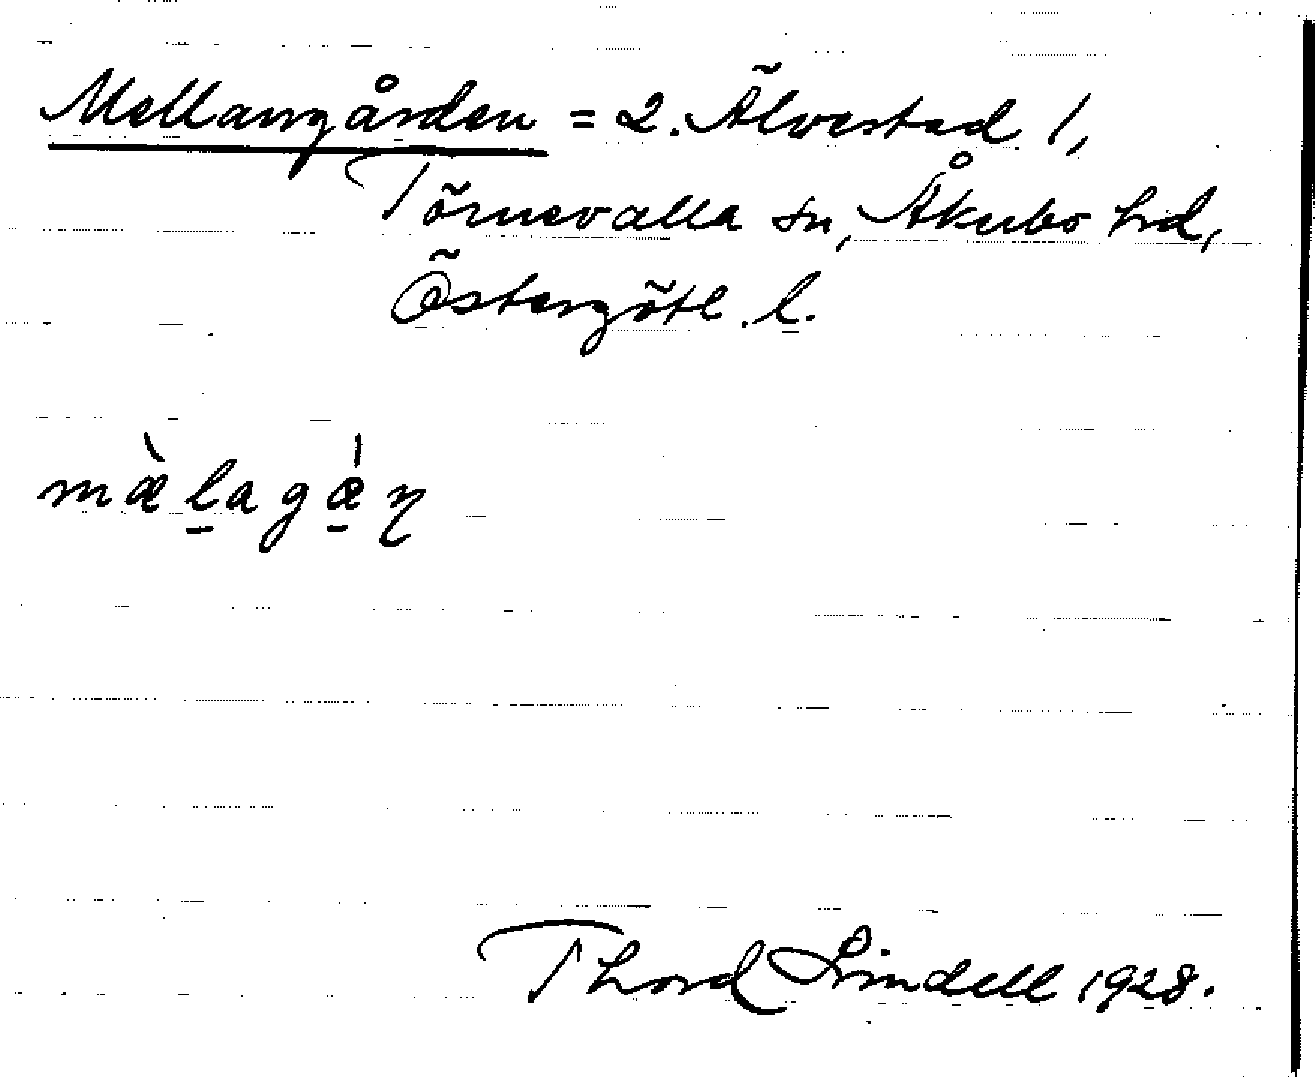 Mellangården = 2. Älvestad 1,
Törnevalla sn, Åkerbo hd,
Östergötl. l.
mæ̀l̠agæ̠̀n̥
Thord Lindell 1928.